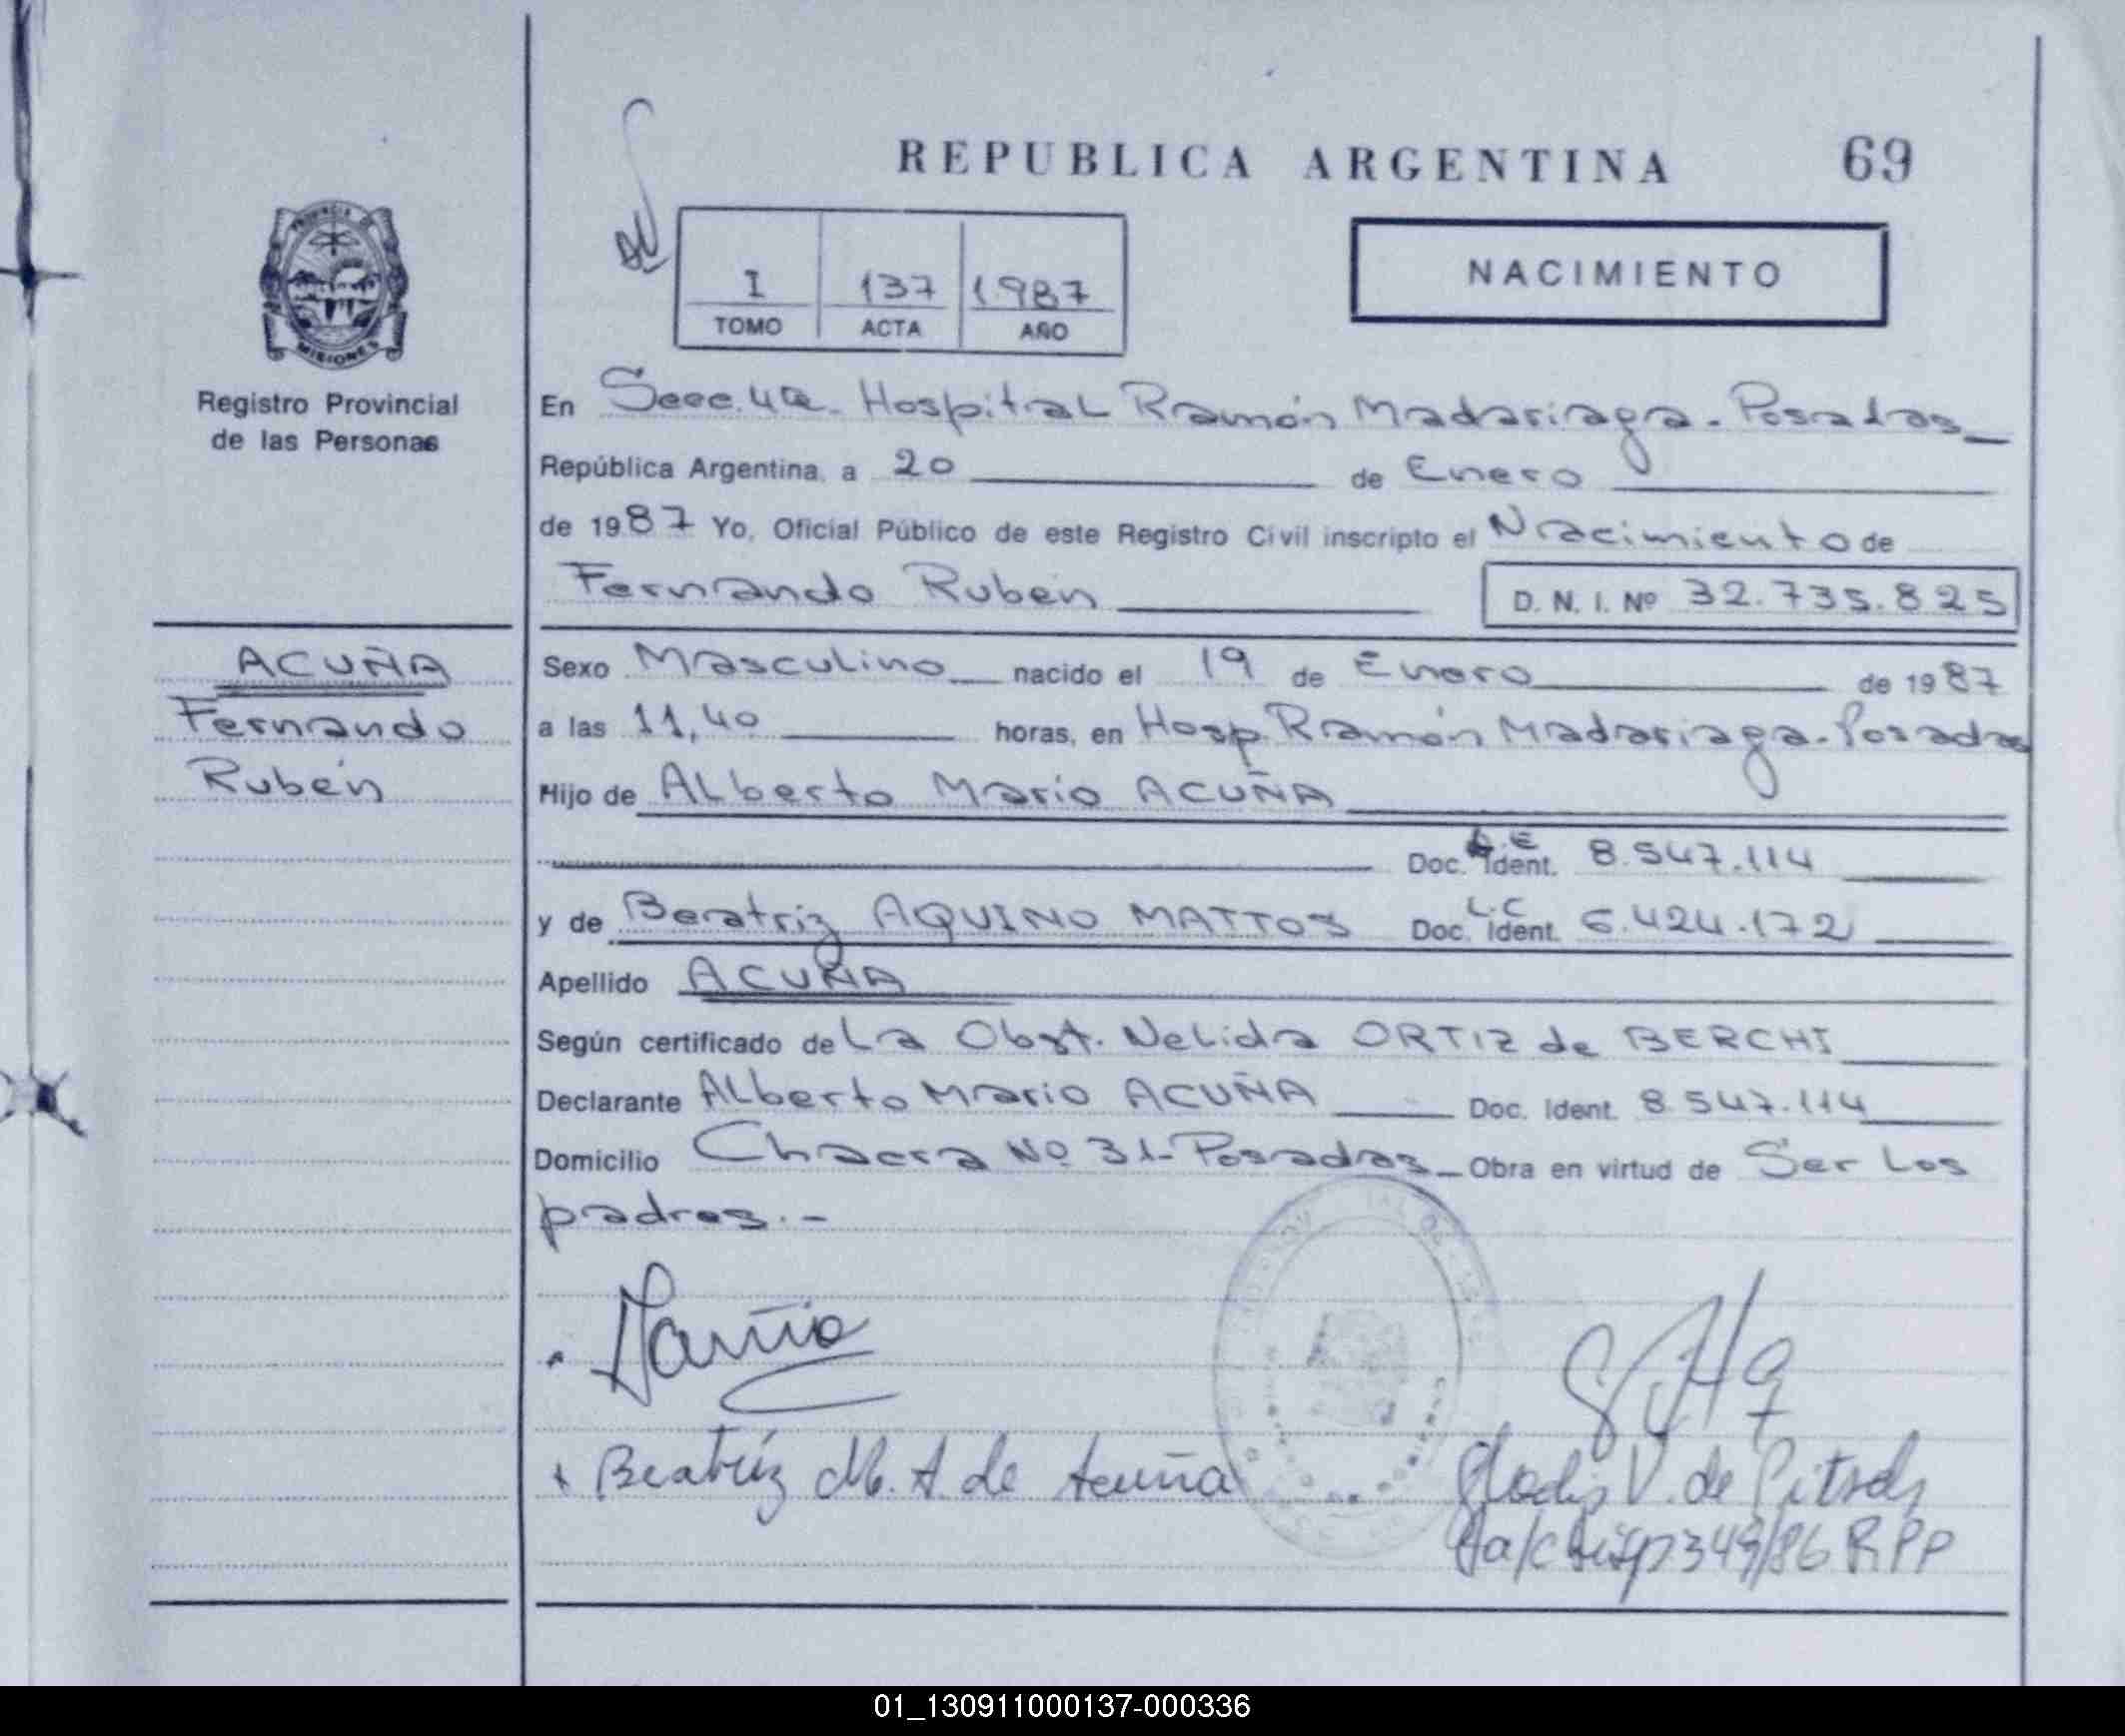 REPUBLICA ARGENTINA 69
I 137 1987
TOMO ACTA AÑO
NACIMIENTO
PROVINCIA DE
MISIONES
Registro Provincial
de las Personas
En Secc. 4a. Hospital Ramón Madariaga - Posadas
República Argentina, a 20 de Enero
de 1987 Yo, Oficial Público de este Registro Civil inscripto el Nacimiento de
Fernando Rubén D. N. I. Nº 32.735.825
ACUÑA
Fernando
Rubén
Sexo Masculino nacido el 19 de Enero de 1987
a las 11,40 horas, en Hosp. Ramón Madariaga - Posadas
Hijo de Alberto Mario ACUÑA
Doc. Ident. L.E 8.547.114
y de Beatriz AQUINO MATTOS Doc. Ident. L.C 6.424.172
Apellido ACUÑA
Según certificado de La Obst. Nelida ORTIZ de BERCHI
Declarante Alberto Mario ACUÑA Doc. Ident. 8.547.114
Domicilio Chacra Nº 31 - Posadas - Obra en virtud de Ser Los
padres.-
Beatríz M. A. de Acuña
Gladis V. de
349/86 RPP
01_130911000137-000336